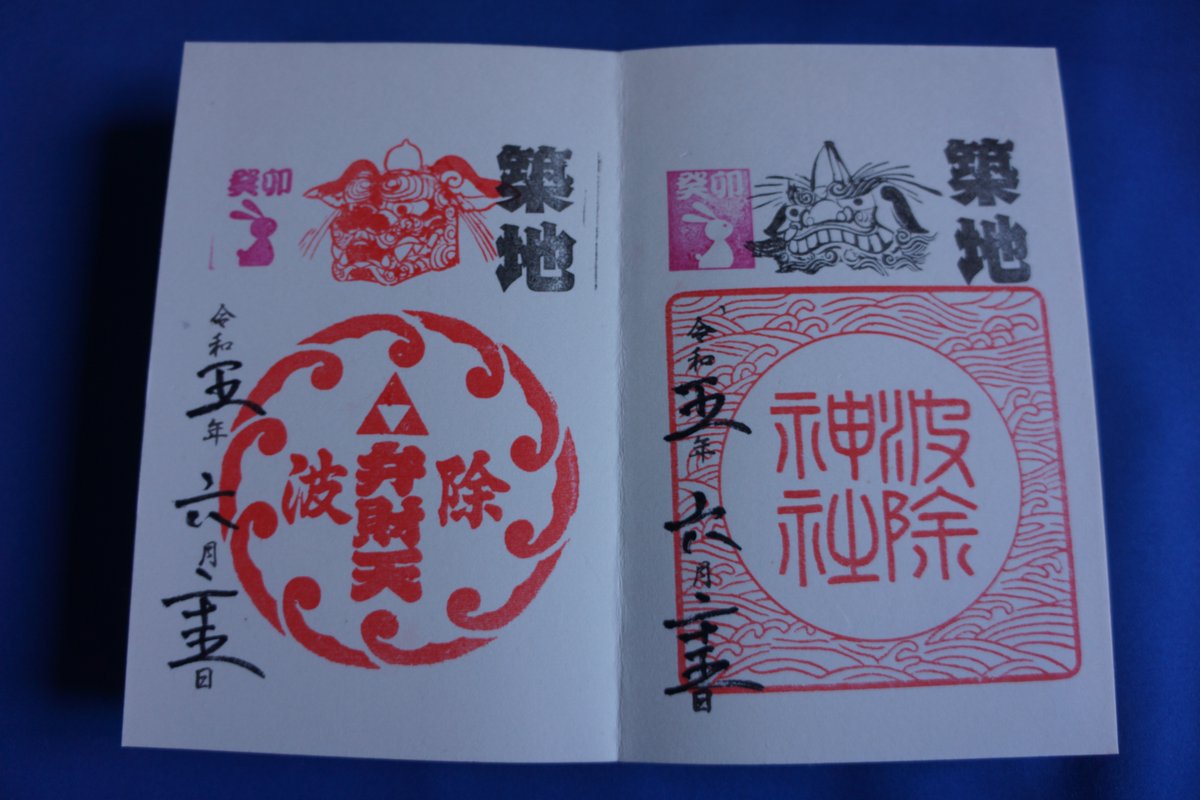 築地
癸卯
波除
神社
令和五年六月二十五日
築地
癸卯
波除
弁財天
令和五年六月二十五日